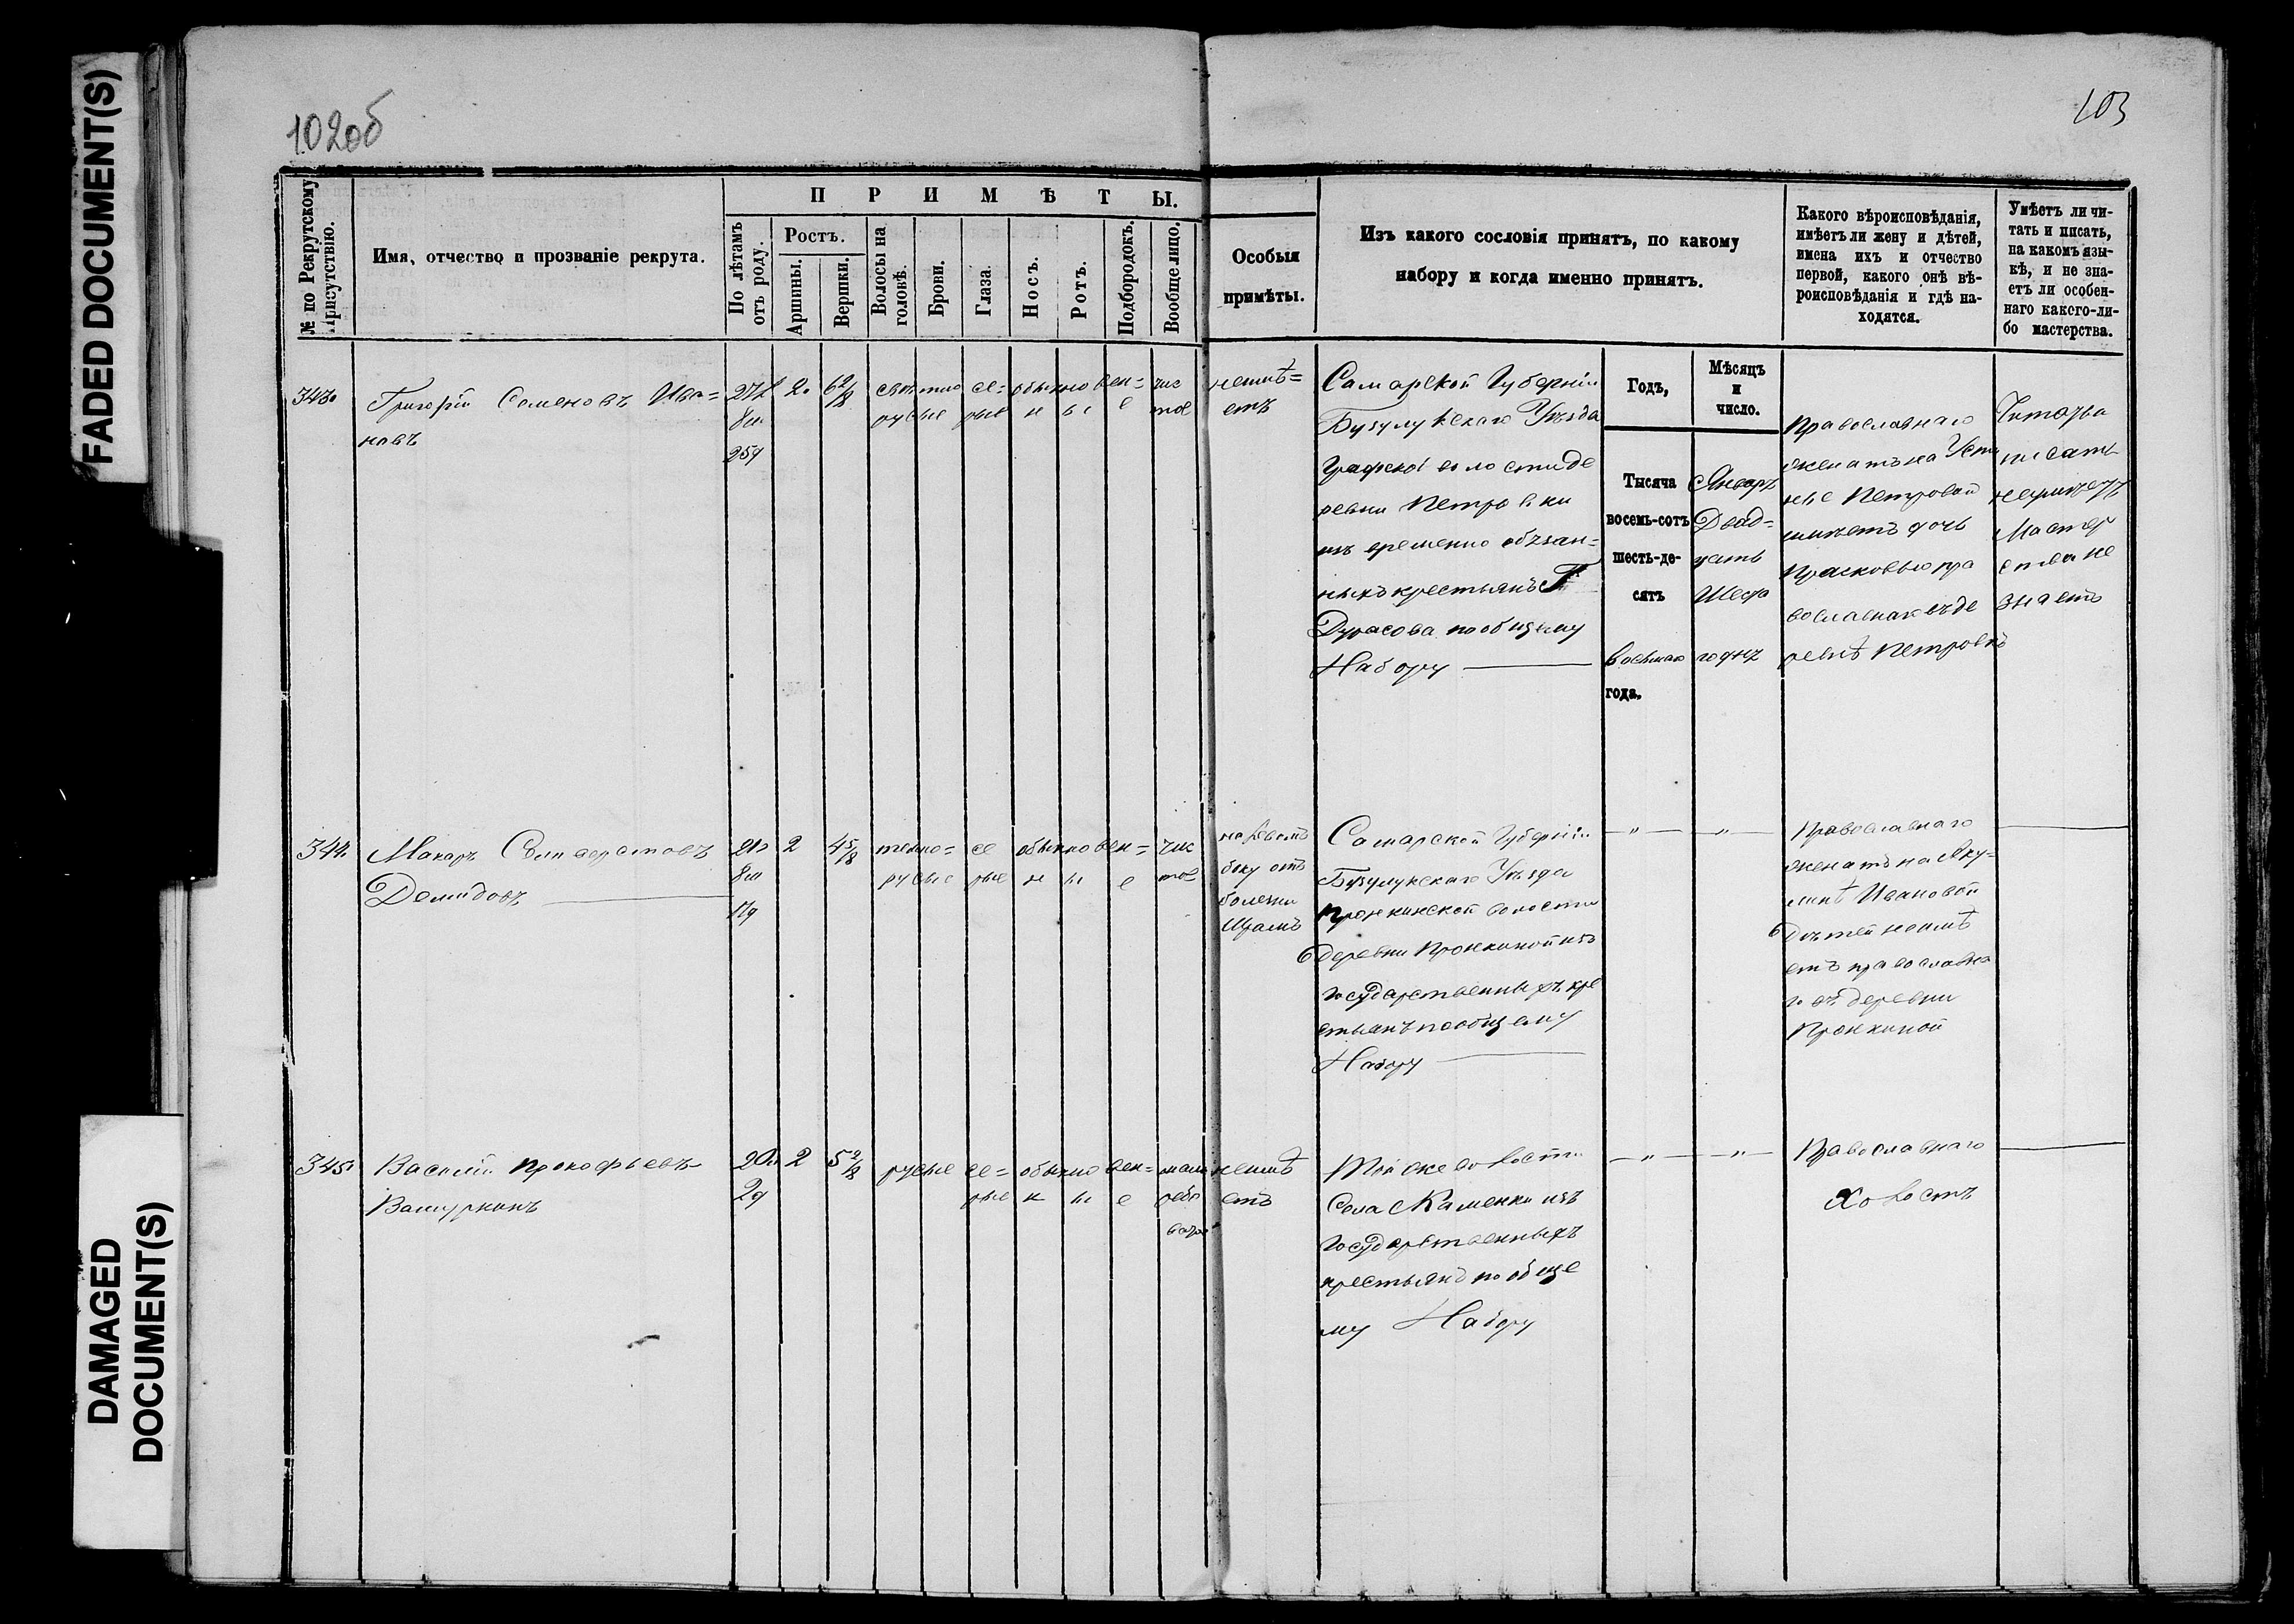 FADED DOCUMENT(S)
DAMAGED
DOCUMENT(S)
102об
103
№ по Рекрутскому
Присутствію.
Имя, отчество и прозваніе рекрута.
ПРИМѢТЫ.
По лѣтамъ
отъ роду.
Ростъ.
Аршины.
Вершки.
Волосы на
головѣ.
Брови.
Глаза.
Носъ.
Ротъ.
Подбородокъ.
Вообще лицо.
Особыя
примѣты.
Изъ какого сословія принятъ, по какому
набору и когда именно принятъ.
Какого вѣроисповѣданія,
имѣетъ ли жену и дѣтей,
имена ихъ и отчество
первой, какого онѣ вѣ-
роисповѣданія и гдѣ на-
ходятся.
Умѣетъ ли чи-
тать и писать,
на какомъ язы-
кѣ, и не зна-
етъ ли особен-
наго какого-ли-
бо мастерства.
343.
Григорій Семеновъ Ива=
новъ
8м
25д
2.
6 2/8
свѣтло
русые
се=
рые
обыкновен=
н ы е
чис
тое
неимѣ=
етъ
Самарской Губерніи
Бузулукскаго Уѣзда
Графской волости де
ревни Петровки
изъ временно обязан=
ныхъ крестьянъ Г
Дурасова по общему
Набору
Годъ,
Тысяча
восемь-сотъ
шесть-де-
сятъ
восьмаго
года.
Мѣсяцъ
и
число.
Январь
Двад=
цать
Шеста
годня
Православнаго
женатъ на Усти
нье Петровой
имѣетъ дочь
Прасковью пра
вославная въ де
ревнѣ Петровкѣ
Читать и
писать
неумѣетъ
Мастер
ства не
знаетъ
344.
Макаръ Селиверстовъ
Демидовъ
21.
8м
11д
2
4 5/8
темно=
русые
се
рые
обыкновен=
н ы е
чис
тое
на левомъ
боку отъ
болезни
Шрамъ
Самарской Губерніи
Бузулукскаго Уѣзда
Пронкинской волости
деревни Пронкиной изъ
государственныхъ кре
стьянъ по общему
Набору
— " —
— " —
Православнаго
женатъ на Аку=
линѣ Ивановой
Дѣтей неимѣ
етъ православна
го въ деревни
Пронкиной
345.
Василій Прокофьевъ
Вашуркинъ
20.
2д
2
5 2/8
русые
се=
рые
обыкновен=
н ы е
мало
рябо
ватое
неимѣ
етъ
Той же волости
Села Каменки изъ
государственныхъ
крестьянъ по обще
му Набору
— " —
— " —
Православнаго
Холостъ